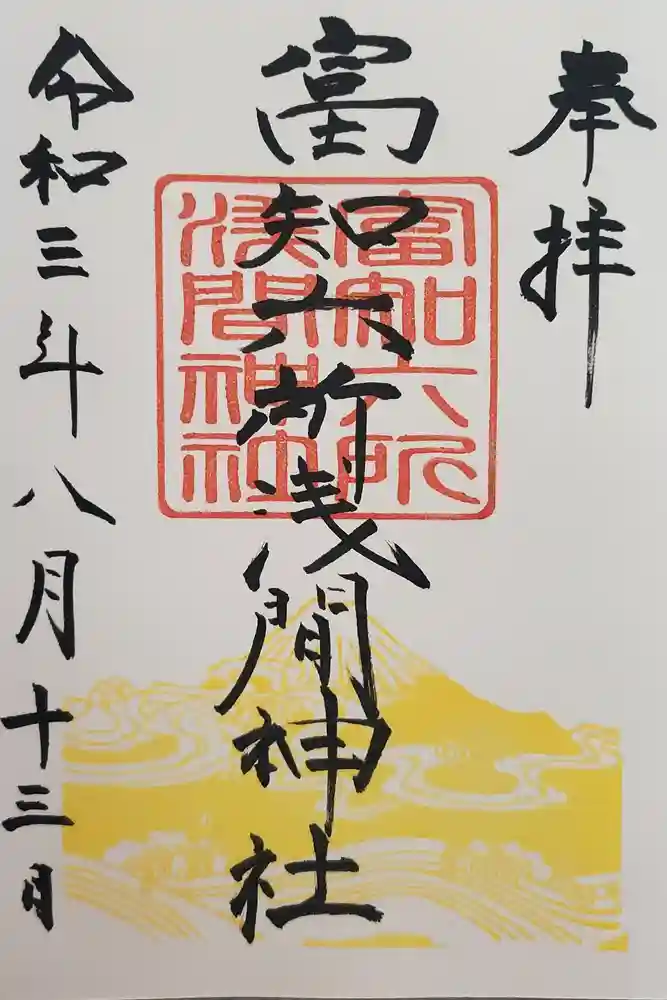 奉拝
富知六所浅間神社
富知六所
浅間神社
令和三年八月十三日